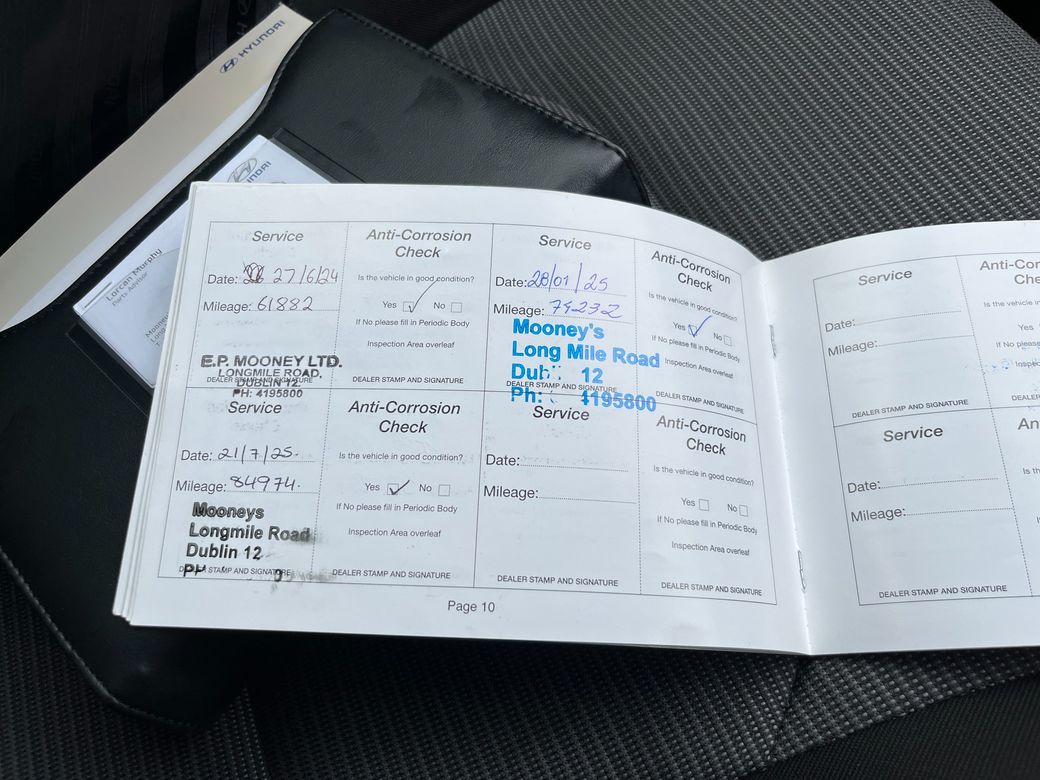 HYUNDAI
HYUNDAI
Lorcan Murphy
Parts Advisor
Service
Date: 27/6/24
Mileage: 61882
E.P. MOONEY LTD.
LONGMILE ROAD,
DUBLIN 12.
PH: 4195800
DEALER STAMP AND SIGNATURE
Anti-Corrosion
Check
Is the vehicle in good condition?
Yes ✓ No
If No please fill in Periodic Body
Inspection Area overleaf
DEALER STAMP AND SIGNATURE
Service
Date: 28/01/25
Mileage: 74232
Mooney's
Long Mile Road
12
Ph: 4195800
DEALER STAMP AND SIGNATURE
Anti-Corrosion
Check
Is the vehicle in good condition?
Yes ✓ No
If No please fill in Periodic Body
Inspection Area overleaf
DEALER STAMP AND SIGNATURE
Service
Date: 21/7/25.
Mileage: 84974.
Mooneys
Longmile Road
Dublin 12
DEALER STAMP AND SIGNATURE
Anti-Corrosion
Check
Is the vehicle in good condition?
Yes ✓ No
If No please fill in Periodic Body
Inspection Area overleaf
DEALER STAMP AND SIGNATURE
Service
Date:
Mileage:
DEALER STAMP AND SIGNATURE
Anti-Corrosion
Check
Is the vehicle in good condition?
Yes No
If No please fill in Periodic Body
Inspection Area overleaf
DEALER STAMP AND SIGNATURE
Page 10
Service
Date:
Mileage:
DEALER STAMP AND SIGNATURE
Is the vehicle in
Yes
If No
DEALER
Service
Date:
Mileage:
DEALER STAMP AND SIGNATURE
Yes
If No
DEALER